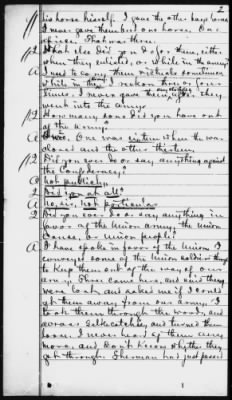 2
his horse himself. I gave the other boys horses
I never gave them but one horse. One
apiece. That was three.
Q What else did you do for them, either
when they enlisted, or while in the army?
A I used to carry them victuals sometimes
while in the I reckon three or four
times. I never gave them anything after they
went into the army.
Q How many sons did you have out
of the army?
A Two. One was sixteen when the war
closed and the other thirteen.
Q Did you ever do or say anything against
the Confederacy?
A Not publicly.
Q Did you at all?
A No, sir, not particular
Q Did you ever do or say anything in
favor of the Union army, the Union
cause, or Union people?
A I have spoke in favor of the Union I
conveyed some of the Union soldiers
to keep them out of the way of our
army. Three came here, and said they
were lost, and asked me if I could
get them away from our army. I
took them through the woods, and
across and turned them
loose. I never heard of them any
more, and don't know whether they
got through. Sherman had just passed